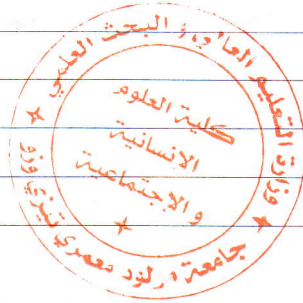 وزارة التعليم العالي و البحث العلمي
كلية العلوم
الانسانية
والإجتماعية
جامعة مولود معمري تيزي وزو